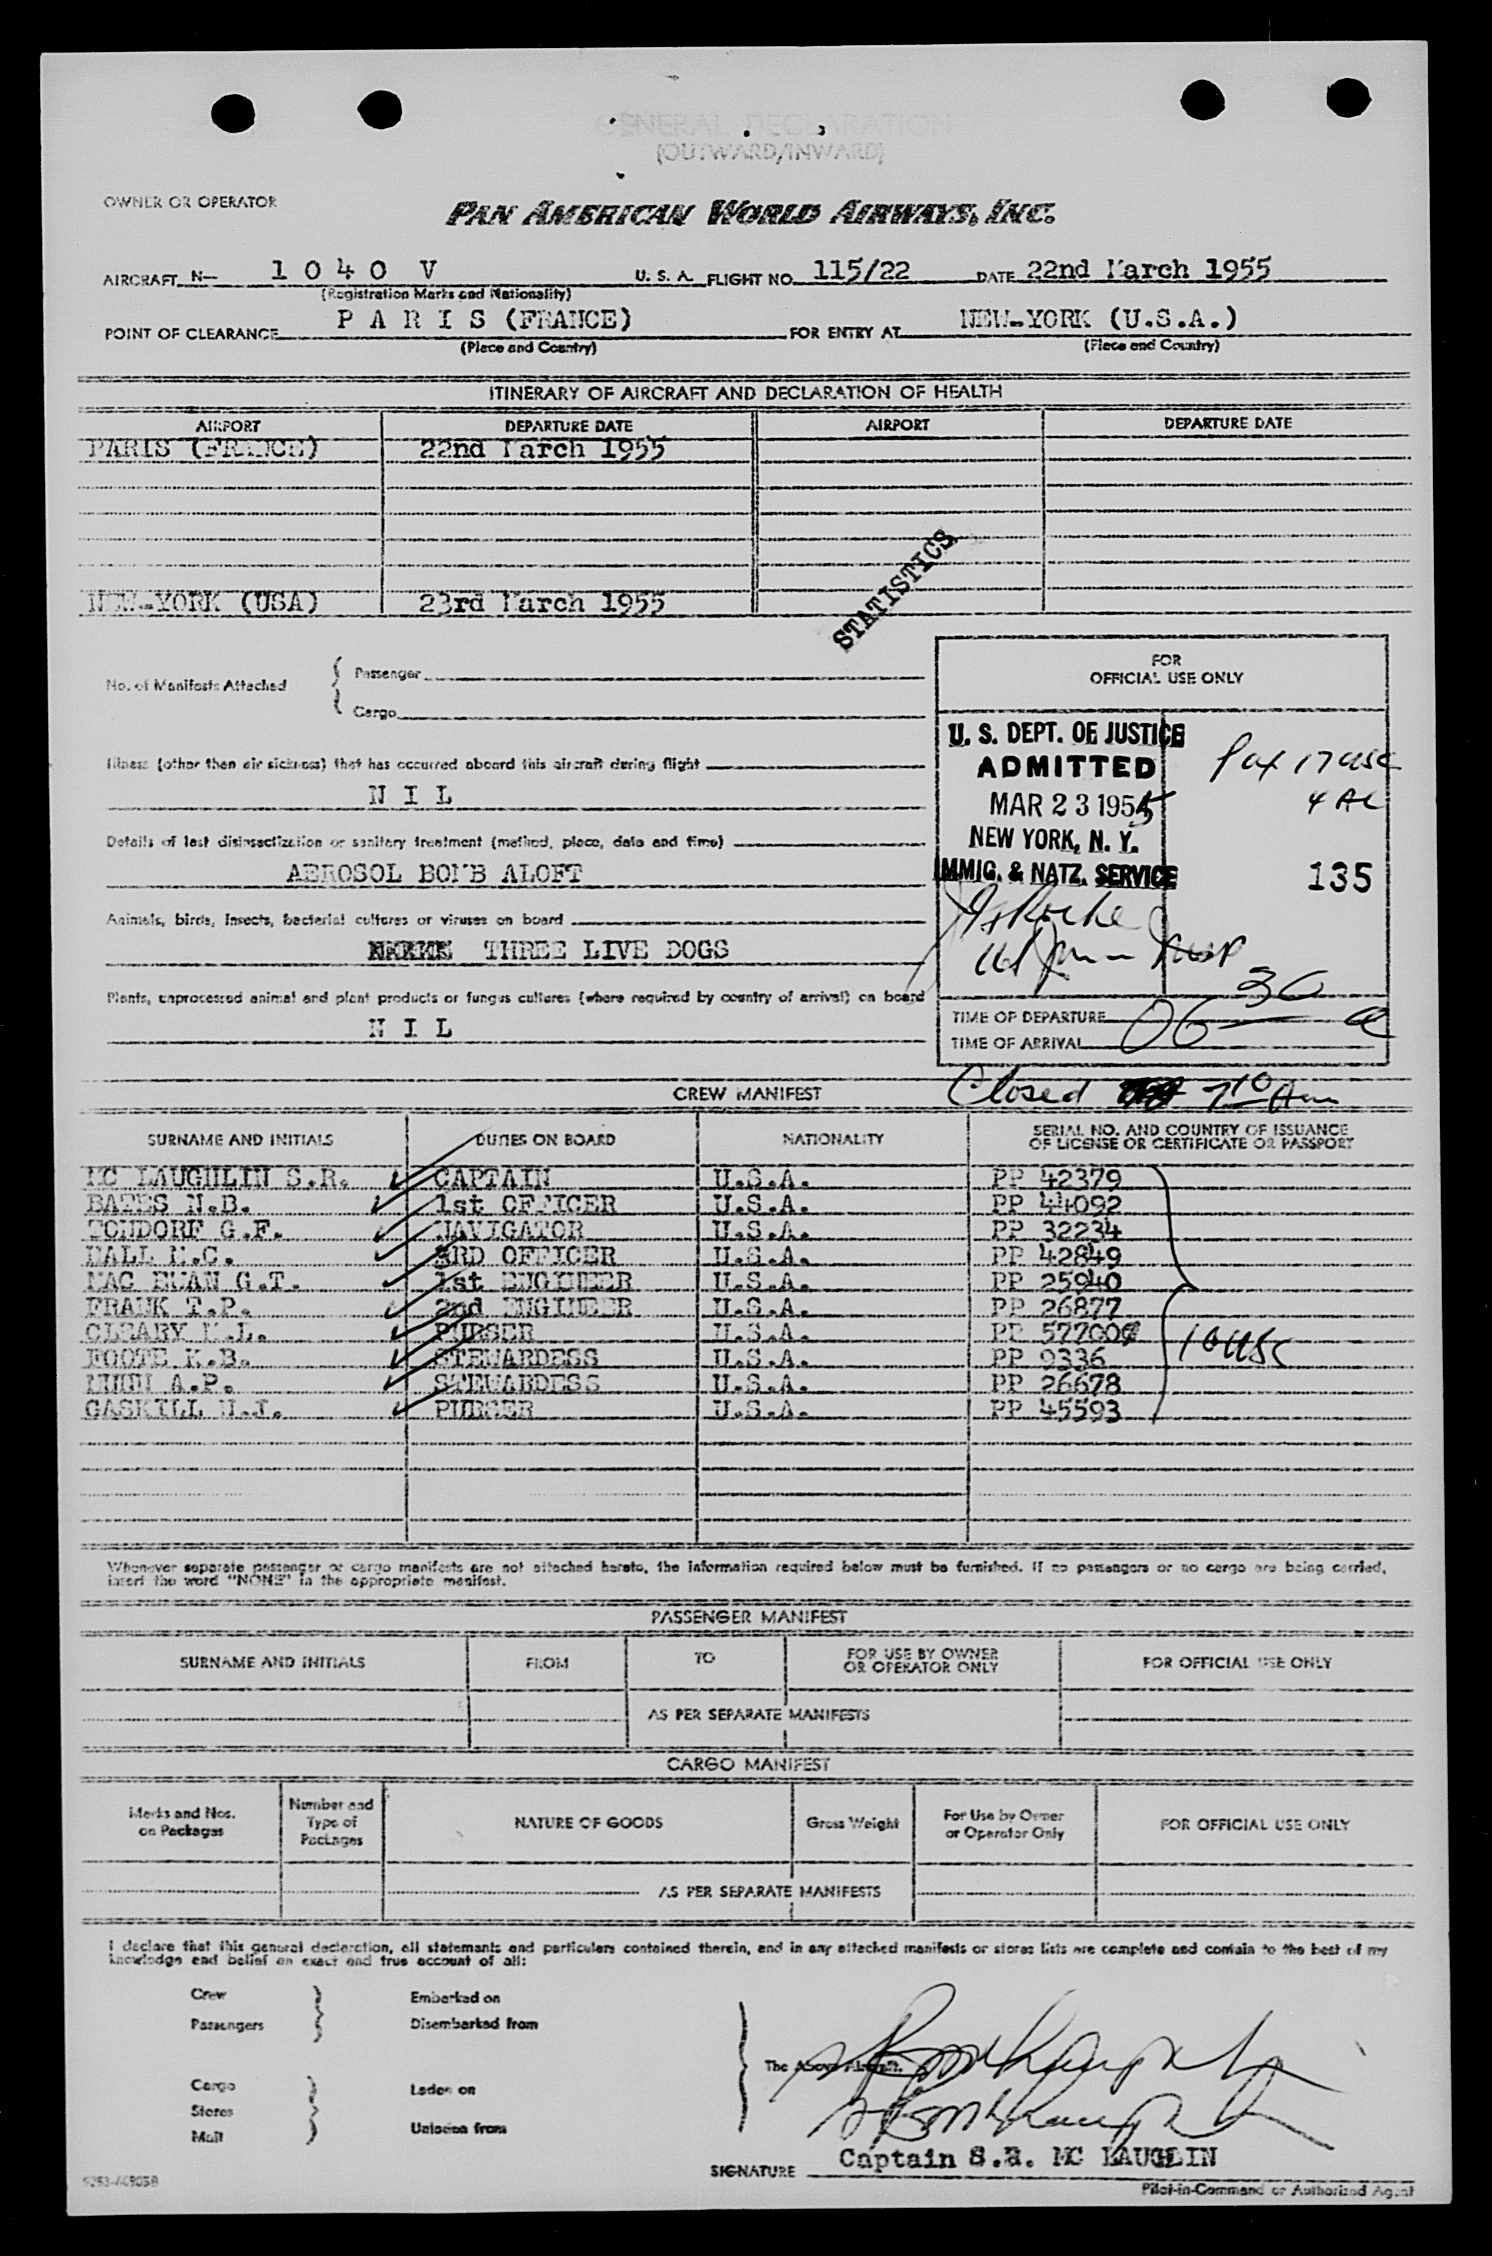 GENERAL DECLARATION
(OUTWARD/INWARD)
OWNER OR OPERATOR
PAN AMERICAN WORLD AIRWAYS, INC.
AIRCRAFT N- 1 0 4 0 V U. S. A. FLIGHT NO. 115/22 DATE 22nd March 1955
(Registration Marks and Nationality)
POINT OF CLEARANCE P A R I S (FRANCE) FOR ENTRY AT NEW-YORK (U.S.A.)
(Place and Country) (Place and Country)
ITINERARY OF AIRCRAFT AND DECLARATION OF HEALTH
AIRPORT DEPARTURE DATE AIRPORT DEPARTURE DATE
PARIS (FRANCE) 22nd March 1955
NEW-YORK (USA) 23rd March 1955
STATISTICS
No. of Manifests Attached
Passenger
Cargo
FOR
OFFICIAL USE ONLY
U. S. DEPT. OF JUSTICE
ADMITTED
MAR 23 1955
NEW YORK, N. Y.
IMMIG. & NATZ. SERVICE
Pax 17 USC
4 AL
135
Illness (other than air sickness) that has occurred aboard this aircraft during flight
N I L
Details of last disinsectization or sanitary treatment (method, place, date and time)
AEROSOL BOMB ALOFT
Animals, birds, insects, bacterial cultures or viruses on board
THREE LIVE DOGS
Plants, unprocessed animal and plant products or fungus cultures (where required by country of arrival) on board
N I L
TIME OF DEPARTURE
TIME OF ARRIVAL 06 30 a
CREW MANIFEST
Closed 7 10 Am
SURNAME AND INITIALS DUTIES ON BOARD NATIONALITY SERIAL NO. AND COUNTRY OF ISSUANCE
OF LICENSE OR CERTIFICATE OR PASSPORT
MC LAUGHLIN S.R. CAPTAIN U.S.A. PP 42379
BATES N.B. 1st OFFICER U.S.A. PP 44092
TONDORF G.F. NAVIGATOR U.S.A. PP 32234
HALL M.C. 3RD OFFICER U.S.A. PP 42849
MAC EWAN G.T. 1st ENGINEER U.S.A. PP 25940
FRANK T.P. 2nd ENGINEER U.S.A. PP 26877
CLEARY M.L. PURSER U.S.A. PP 577004
FOOTE K.B. STEWARDESS U.S.A. PP 9336
A.P. STEWARDESS U.S.A. PP 26678
GASKILL N.J. PURSER U.S.A. PP 45593
10 USC
Whenever separate passenger or cargo manifests are not attached hereto, the information required below must be furnished. If no passengers or no cargo are being carried,
insert the word "NONE" in the appropriate manifest.
PASSENGER MANIFEST
SURNAME AND INITIALS FROM TO FOR USE BY OWNER
OR OPERATOR ONLY FOR OFFICIAL USE ONLY
AS PER SEPARATE MANIFESTS
CARGO MANIFEST
Marks and Nos.
on Packages Number and
Type of
Packages NATURE OF GOODS Gross Weight For Use by Owner
or Operator Only FOR OFFICIAL USE ONLY
AS PER SEPARATE MANIFESTS
I declare that this general declaration, all statements and particulars contained therein, and in any attached manifests or stores lists are complete and contain to the best of my
knowledge and belief an exact and true account of all:
Crew Embarked on
Passengers Disembarked from
The Above Aircraft.
Cargo Laden on
Stores
Mail Unladen from
Captain S.R. MC LAUGHLIN
SIGNATURE
Pilot-in-Command or Authorized Agent